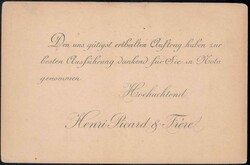 Den uns gütigst ertheilten Auftrag haben zur
besten Ausführung dankend für Sie in Nota
genommen.
Hochachtend
Henri Picard & Frère